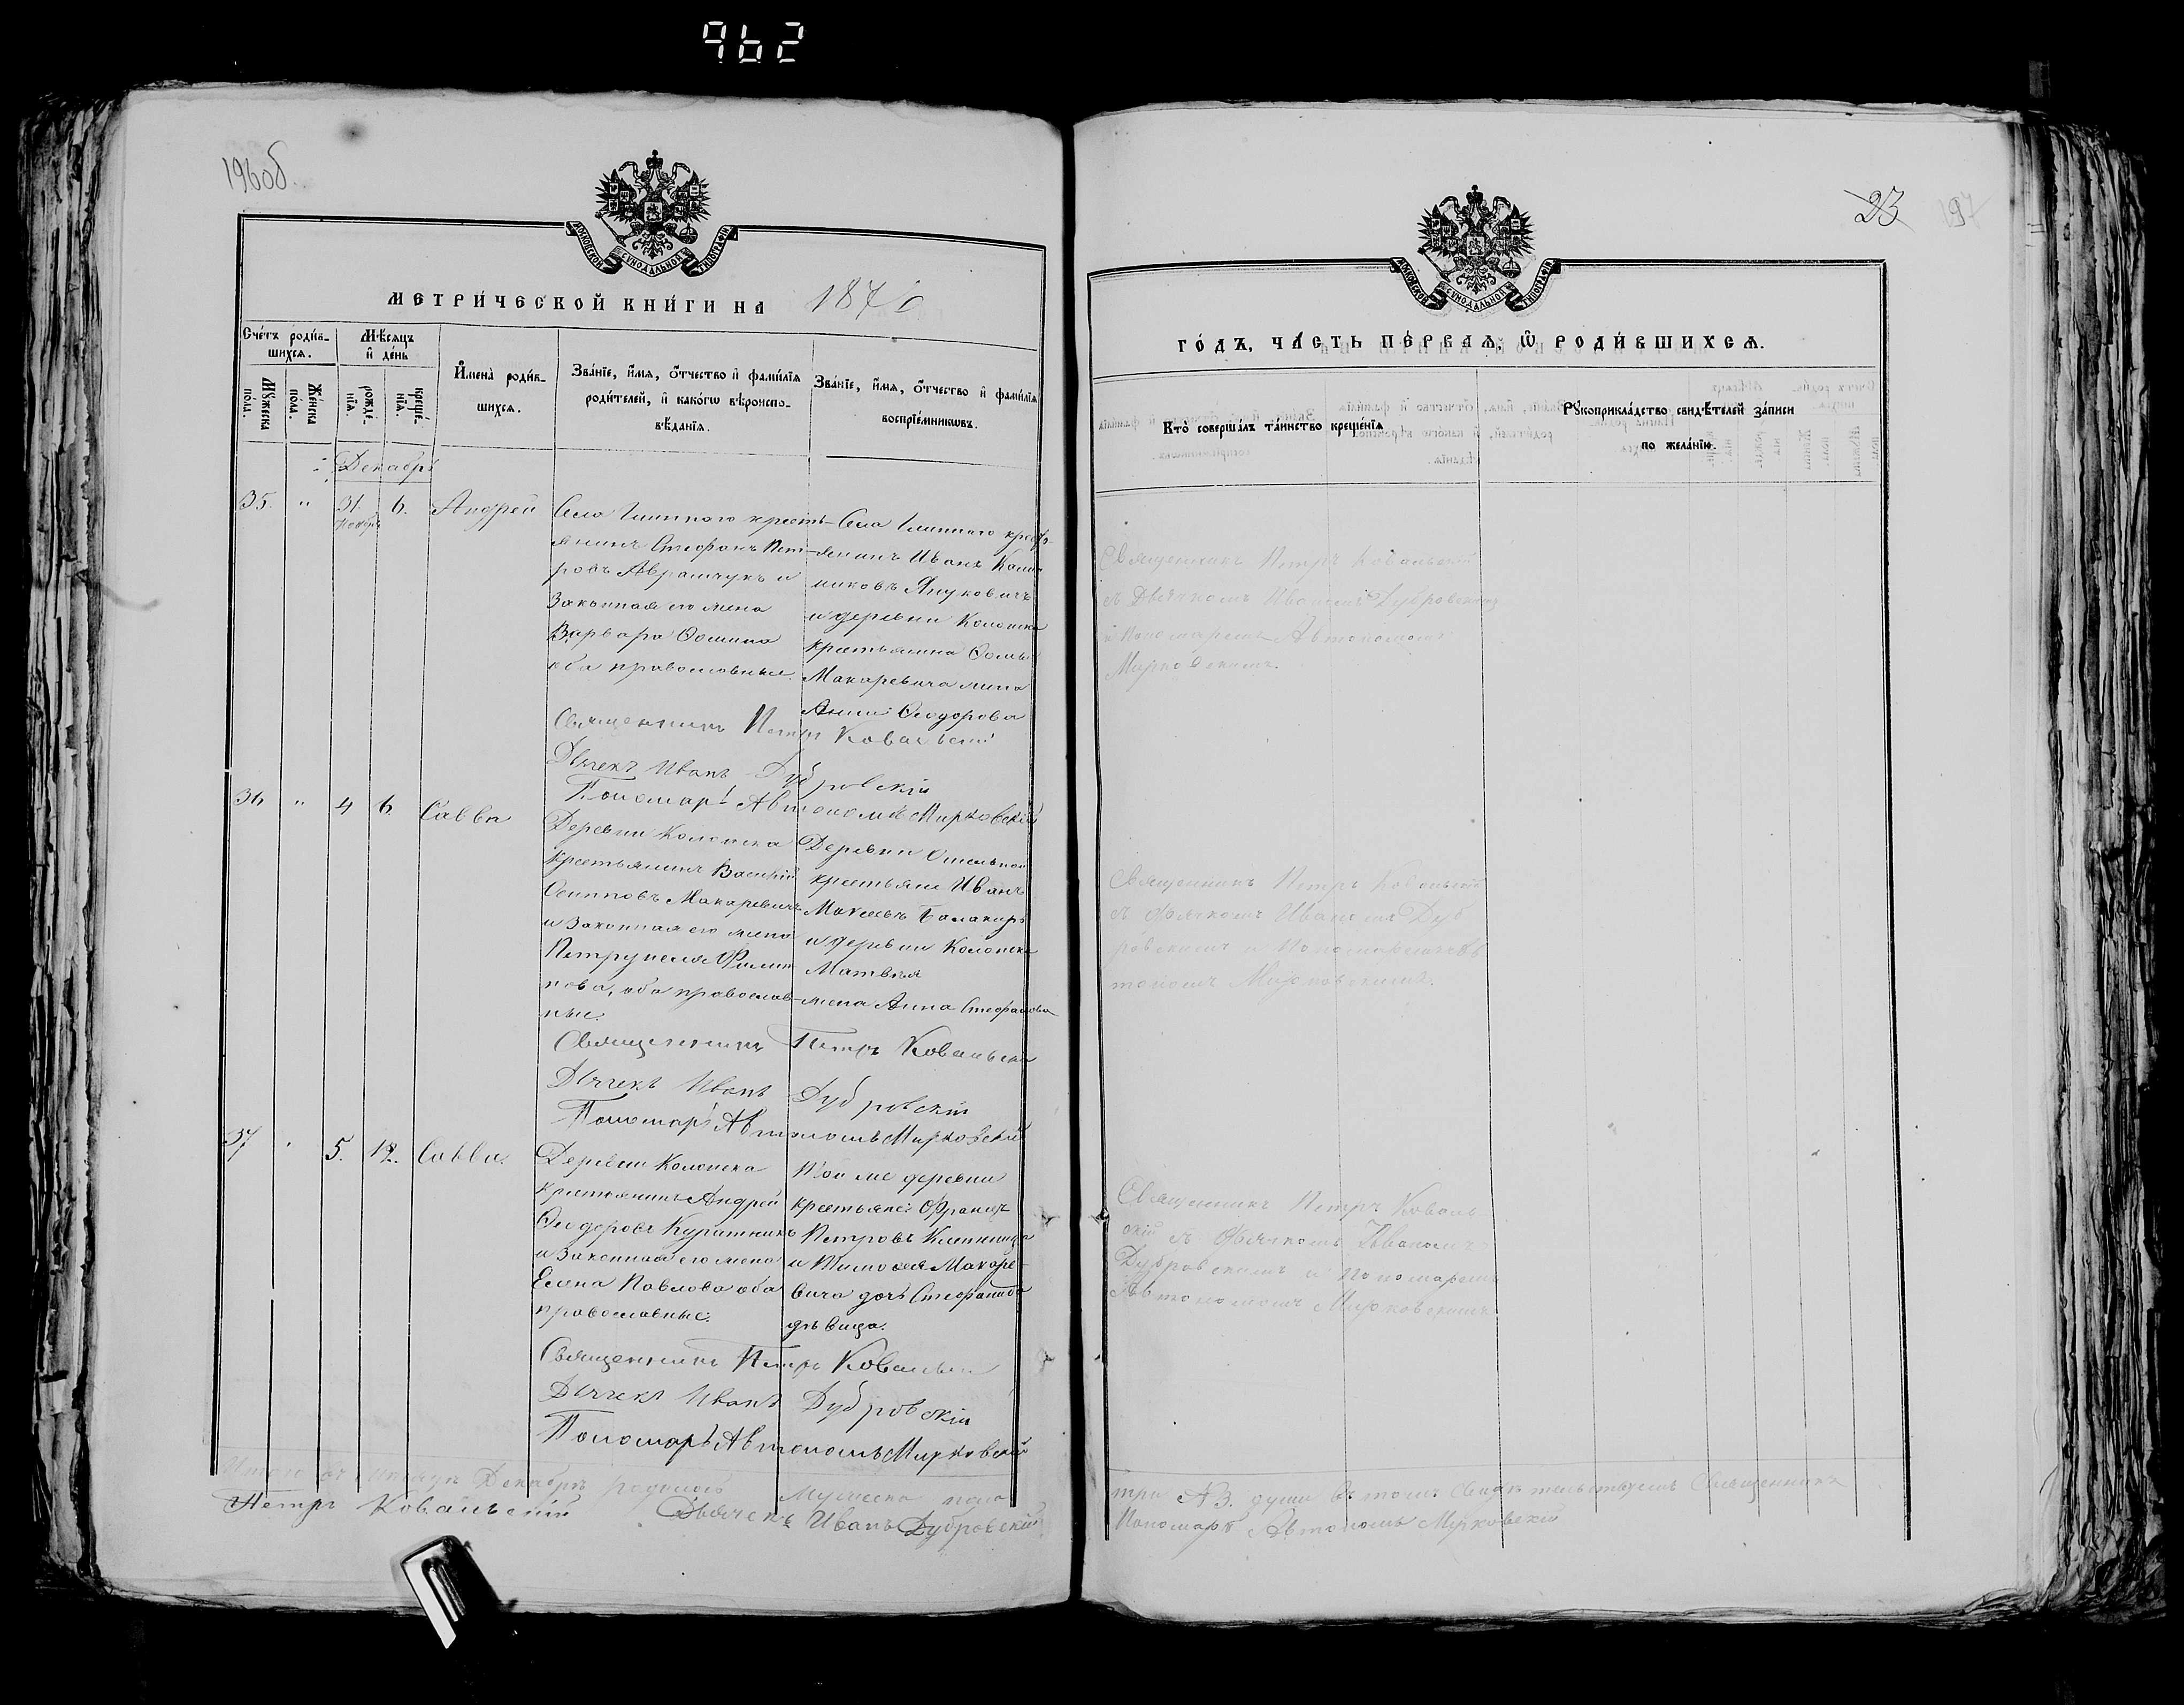 962
196об.
МОСКОВСКОЙ СѴНОДАЛЬНОЙ ТИПОГРАФІИ
МЕТРИ́ЧЕСКОЙ КНИ́ГИ НА 187
Сче́тъ роди́в-
шихсѧ.
Мѣ́сѧцъ
и҆ де́нь
Мꙋ́жеска по́ла.
Же́нска по́ла.
рожде́-нїѧ.
креще́-нїѧ.
И҆мена̀ роди́в-
шихсѧ.
Зва́нїе, и҆́мѧ, ѻ҆́тчество и҆ фами́лїѧ
роди́телей, и҆ како́гѡ вѣ̑роиспо-
вѣ́данїѧ.
Зва́нїе, и҆́мѧ, ѻ҆́тчество и҆ фами́лїѧ
воспрїе́мникѡвъ.
Декабрь
35. " 31. Ноябрь 6. Андрей
Села крестьянинъ Стефанъ Пет-
ровъ Аврамчукъ и
Законная его жена
Варвара Ѳомина
оба православные.
Села кресть-
янинъ Иванъ
Януковичъ
и деревни Колонска
крестьянина Ѳомы
Макаревича жена
Анна Ѳеодорова
Священникъ Петръ Ковальскій
Дьячекъ Иванъ Дубровскій
Пономарь Автономъ Мирковскій
36 " 4 6. Савва
Деревни Колонска
крестьянинъ Василій
Осиповъ Макаревичъ
и Законная его жена
Петрунеля Филип-
пова, оба православ-
ные.
Деревни
крестьяне Иванъ
и деревни Колонска
Матвѣя
жена Анна Стефанова
Священникъ Петръ Ковальскій
Дьячекъ Иванъ Дубровскій
Пономарь Автономъ Мирковскій
37 " 5. 12. Савва.
Деревни Колонска
крестьянинъ Андрей
Ѳеодоровъ Куратникъ
и Законная его жена
Елена Павлова оба
православные.
Той же деревни
крестьяне: Францъ
Петровъ
и Тимоѳея Макаре-
вича дочь Стефанида
дѣвица.
Священникъ Петръ Ковальскій
Дьячекъ Иванъ Дубровскій
Пономарь Автономъ Мирковскій
Итого въ мѣсяцѣ Декабрѣ родилось Мужеска пола
Петръ Ковальскій Дьячекъ Иванъ Дубровскій
23 197
МОСКОВСКОЙ СѴНОДАЛЬНОЙ ТИПОГРАФІИ
ГО́ДЪ, ЧА́СТЬ ПЕ́РВАѦ, Ѡ҆ РОДИ́ВШИХСѦ.
Кто̀ соверша́лъ та́инство креще́нїѧ
Рꙋкоприкла́дство свидѣ́телей за́писи
по жела́нїю.
Священникъ Петръ Ковальскій
съ Дьячкомъ Иваномъ Дубровскимъ
и Пономаремъ Автономомъ
Мирковскимъ.
Священникъ Петръ Ковальскій
съ Дьячкомъ Иваномъ Дуб
ровскимъ и Пономаремъ Ав
тономомъ Мирковскимъ.
Священникъ Петръ Коваль
скій съ Дьячкомъ Иваномъ
Дубровскимъ и Пономаремъ
Автономомъ Мирковскимъ
три 3. души въ томъ свидѣтельствуемъ Священникъ
Пономарь Автономъ Мирковскій